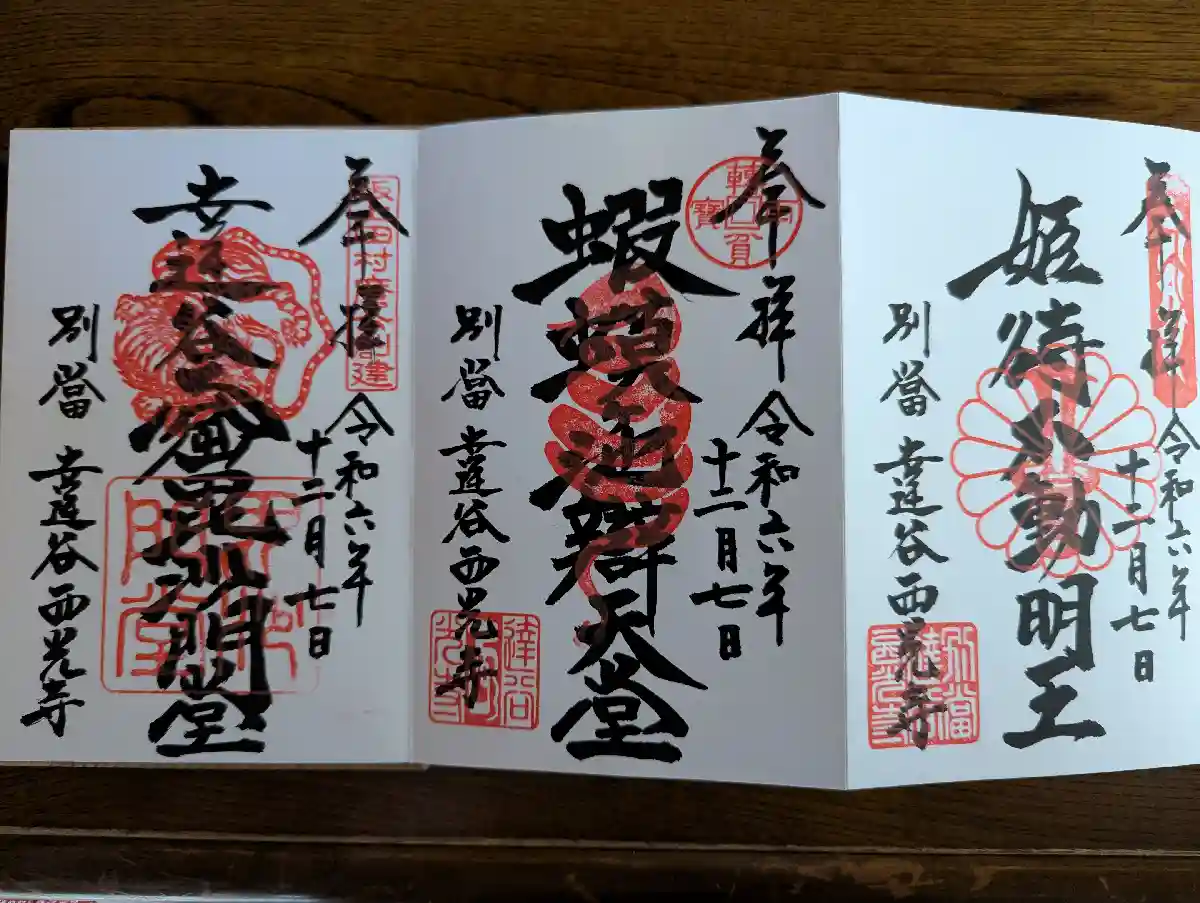 奉拝
令和六年
十二月七日
姫待不動明王
別當 達谷西光寺
奉拝
令和六年
十二月七日
蝦蟆ヶ池辯天堂
別當 達谷西光寺
坂上田村麿公創建
奉拝
令和六年
十二月七日
達谷窟毘沙門堂
別當 達谷西光寺